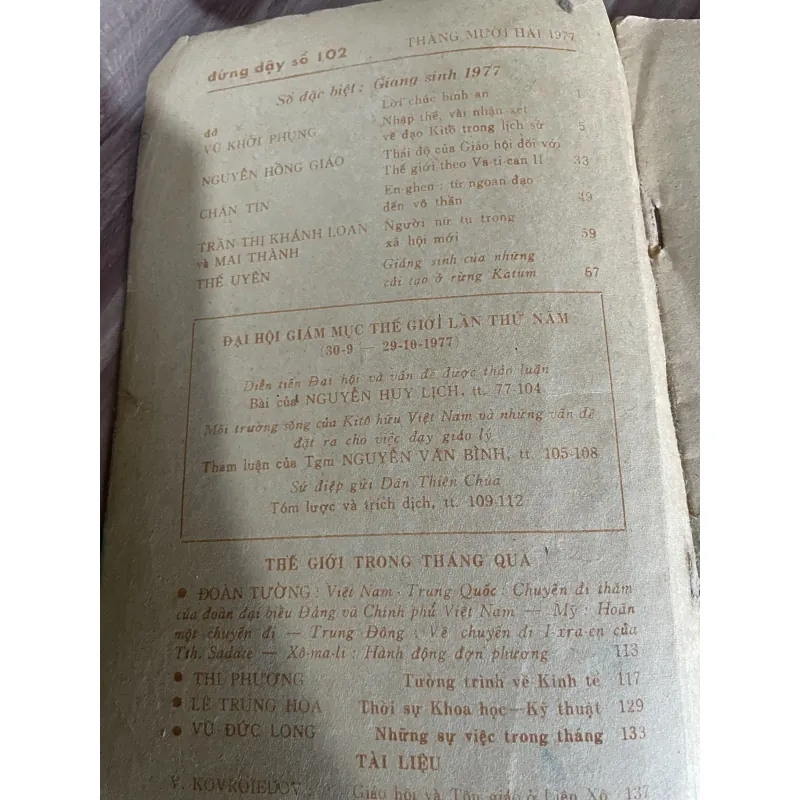 đứng dậy số 102 THÁNG MƯỜI HAI 1977
Số đặc biệt : Giáng sinh 1977
đd Lời chúc bình an 1
VŨ KHỞI PHỤNG Nhập thế, vài nhận xét
về đạo Kitô trong lịch sử 5
NGUYỄN HỒNG GIÁO Thái độ của Giáo hội đối với
Thế giới theo Va-ti-can II 33
CHÂN TÍN En-ghen : từ ngoan đạo
đến vô thần 49
TRẦN THỊ KHÁNH LOAN Người nữ tu trong
và MAI THÀNH xã hội mới 59
THẾ UYÊN Giáng sinh của những
cải tạo ở rừng Katum 67
ĐẠI HỘI GIÁM MỤC THẾ GIỚI LẦN THỨ NĂM
(30-9 — 29-10-1977)
Diễn tiến Đại hội và vấn đề được thảo luận
Bài của NGUYỄN HUY LỊCH, tt. 77-104
Môi trường sống của Kitô hữu Việt Nam và những vấn đề
đặt ra cho việc dạy giáo lý
Tham luận của Tgm NGUYỄN VĂN BÌNH, tt. 105-108
Sứ điệp gửi Dân Thiên Chúa
Tóm lược và trích dịch, tt. 109-112
THẾ GIỚI TRONG THÁNG QUA
• ĐOÀN TƯỜNG : Việt Nam - Trung Quốc : Chuyến đi thăm
của đoàn đại biểu Đảng và Chính phủ Việt Nam — Mỹ : Hoãn
một chuyến đi — Trung Đông : Về chuyến đi I-xra-en của
Tth. Sadate — Xô-ma-li : Hành động đơn phương 113
• THI PHƯƠNG Tường trình về Kinh tế 117
• LÊ TRUNG HOA Thời sự Khoa học—Kỹ thuật 129
• VŨ ĐỨC LONG Những sự việc trong tháng 133
TÀI LIỆU
V. KOVROIEDOV : Giáo hội và Tôn giáo ở Liên Xô 137